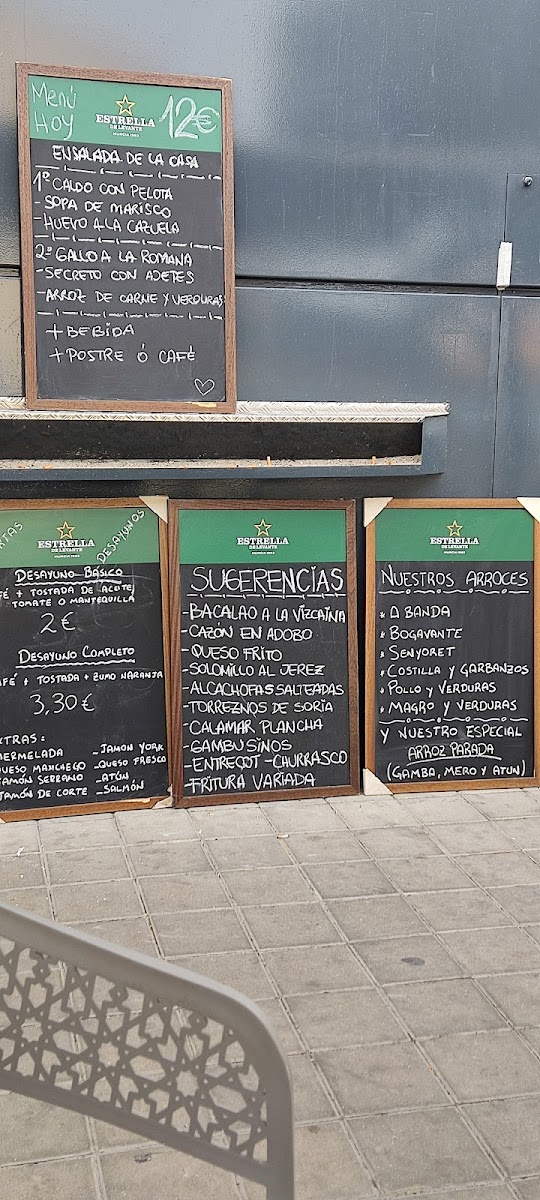 Menú
Hoy
ESTRELLA
DE LEVANTE
MURCIA 1963
12€
ENSALADA DE LA CASA
1º CALDO CON PELOTA
- SOPA DE MARISCO
- HUEVO A LA CAZUELA
2º GALLO A LA ROMANA
- SECRETO CON AJETES
- ARROZ DE CARNE Y VERDURAS
+ BEBIDA
+ POSTRE Ó CAFÉ
DESAYUNOS
ESTRELLA
DE LEVANTE
MURCIA 1963
DESAYUNO BÁSICO
FÉ + TOSTADA DE ACEITE/
TOMATE O MANTEQUILLA
2€
DESAYUNO COMPLETO
AFÉ + TOSTADA + ZUMO NARANJA
3,30€
XTRAS:
MERMELADA - JAMON YORK
QUESO MANCHEGO - QUESO FRESCO
JAMÓN SERRANO - ATÚN
JAMÓN DE CORTE - SALMÓN
ESTRELLA
DE LEVANTE
MURCIA 1963
SUGERENCIAS
- BACALAO A LA VIZCAÍNA
- CAZÓN EN ADOBO
- QUESO FRITO
- SOLOMILLO AL JEREZ
- ALCACHOFAS SALTEADAS
- TORREZNOS DE SORIA
- CALAMAR PLANCHA
- GAMBUSINOS
- ENTREÇOT - CHURRASCO
- FRITURA VARIADA
ESTRELLA
DE LEVANTE
MURCIA 1963
NUESTROS ARROCES
* A BANDA
* BOGAVANTE
* SENYORET
* COSTILLA Y GARBANZOS
* POLLO Y VERDURAS
* MAGRO Y VERDURAS
Y NUESTRO ESPECIAL
ARROZ PARADA
(GAMBA, MERO Y ATUN)